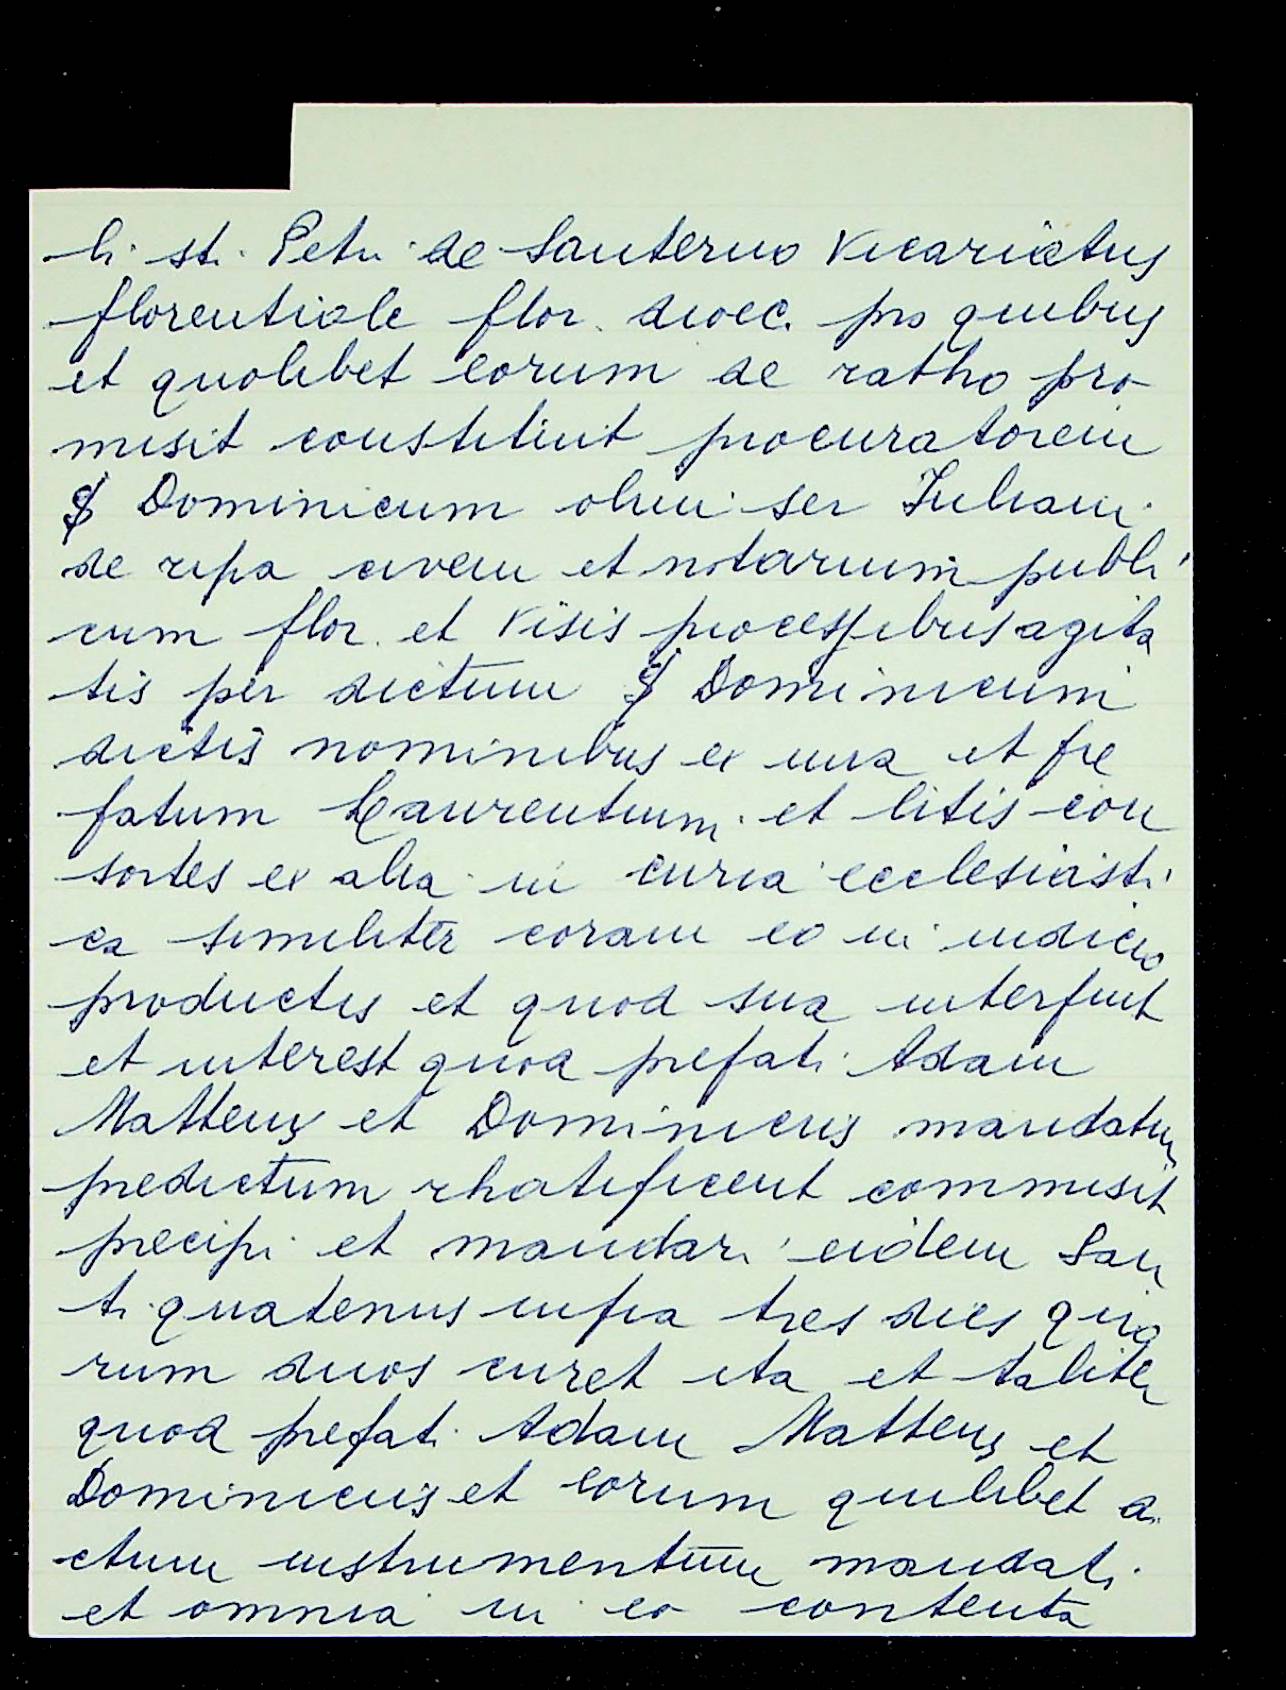 li sti Petri de Santerno Vicariatus
florentiole flor. dioec. pro quibus
et quolibet eorum de ratho pro
misit constituit procuratorem
S Dominicum olim ser Iuliani
de ripa civem et notarium publi
cum flor. et visis processibus agita
tis per dictum S Dominicum
dictis nominibus ex una et pre
fatum Laurentium et litis con
sortes ex alia in curia ecclesiasti
ca similiter coram eo in iudicio
productis et quod sua interfuit
et interest quod prefati Adam
Mattheus et Dominicus mandatum
predictum rhatificent commisit
precipi et mandari eidem San
ti quatenus infra tres dies quo
rum duos curet ita et taliter
quod prefati Adam Mattheus et
Dominicus et eorum quilibet a.
ctum instrumentum mandati
et omnia in eo contenta